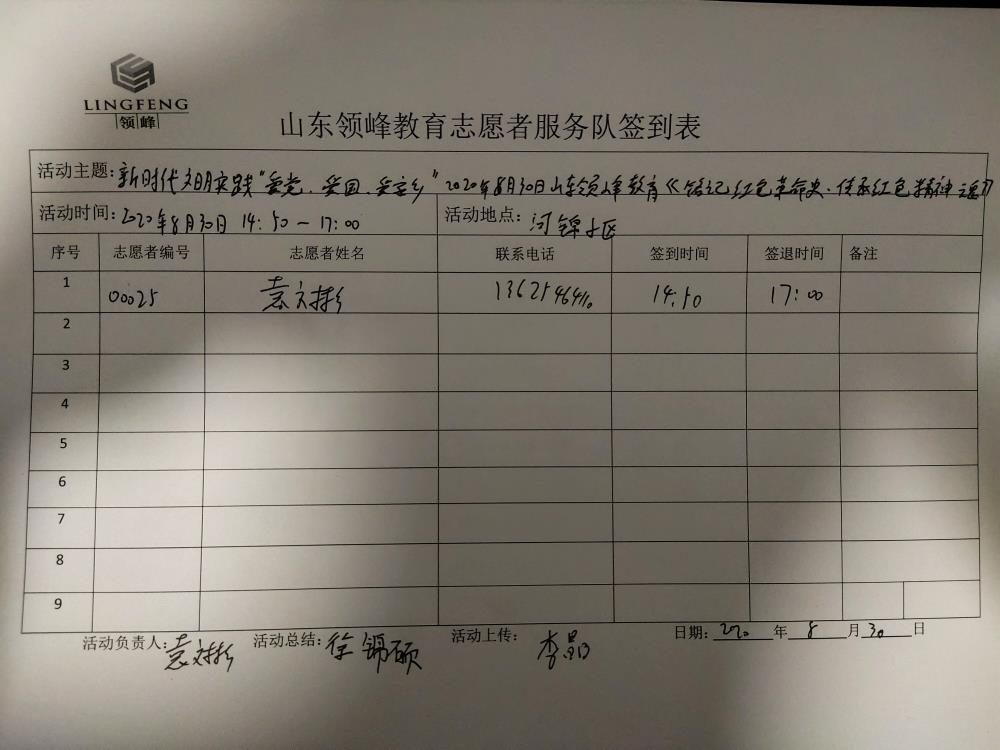 LINGFENG
领峰
山东领峰教育志愿者服务队签到表
活动主题:新时代文明实践“爱党、爱国、爱家乡”2020年8月30日山东领峰教育《铭记红色革命史、传承红色精神之魂》
活动时间:2020年8月30日 14:50-17:00 活动地点:河锦小区
序号 志愿者编号 志愿者姓名 联系电话 签到时间 签退时间 备注
1 00025 袁文彬 14:50 17:00
2
3
4
5
6
7
8
9
活动负责人:袁文彬 活动总结:徐锦硕 活动上传:李 日期:2020年8月30日